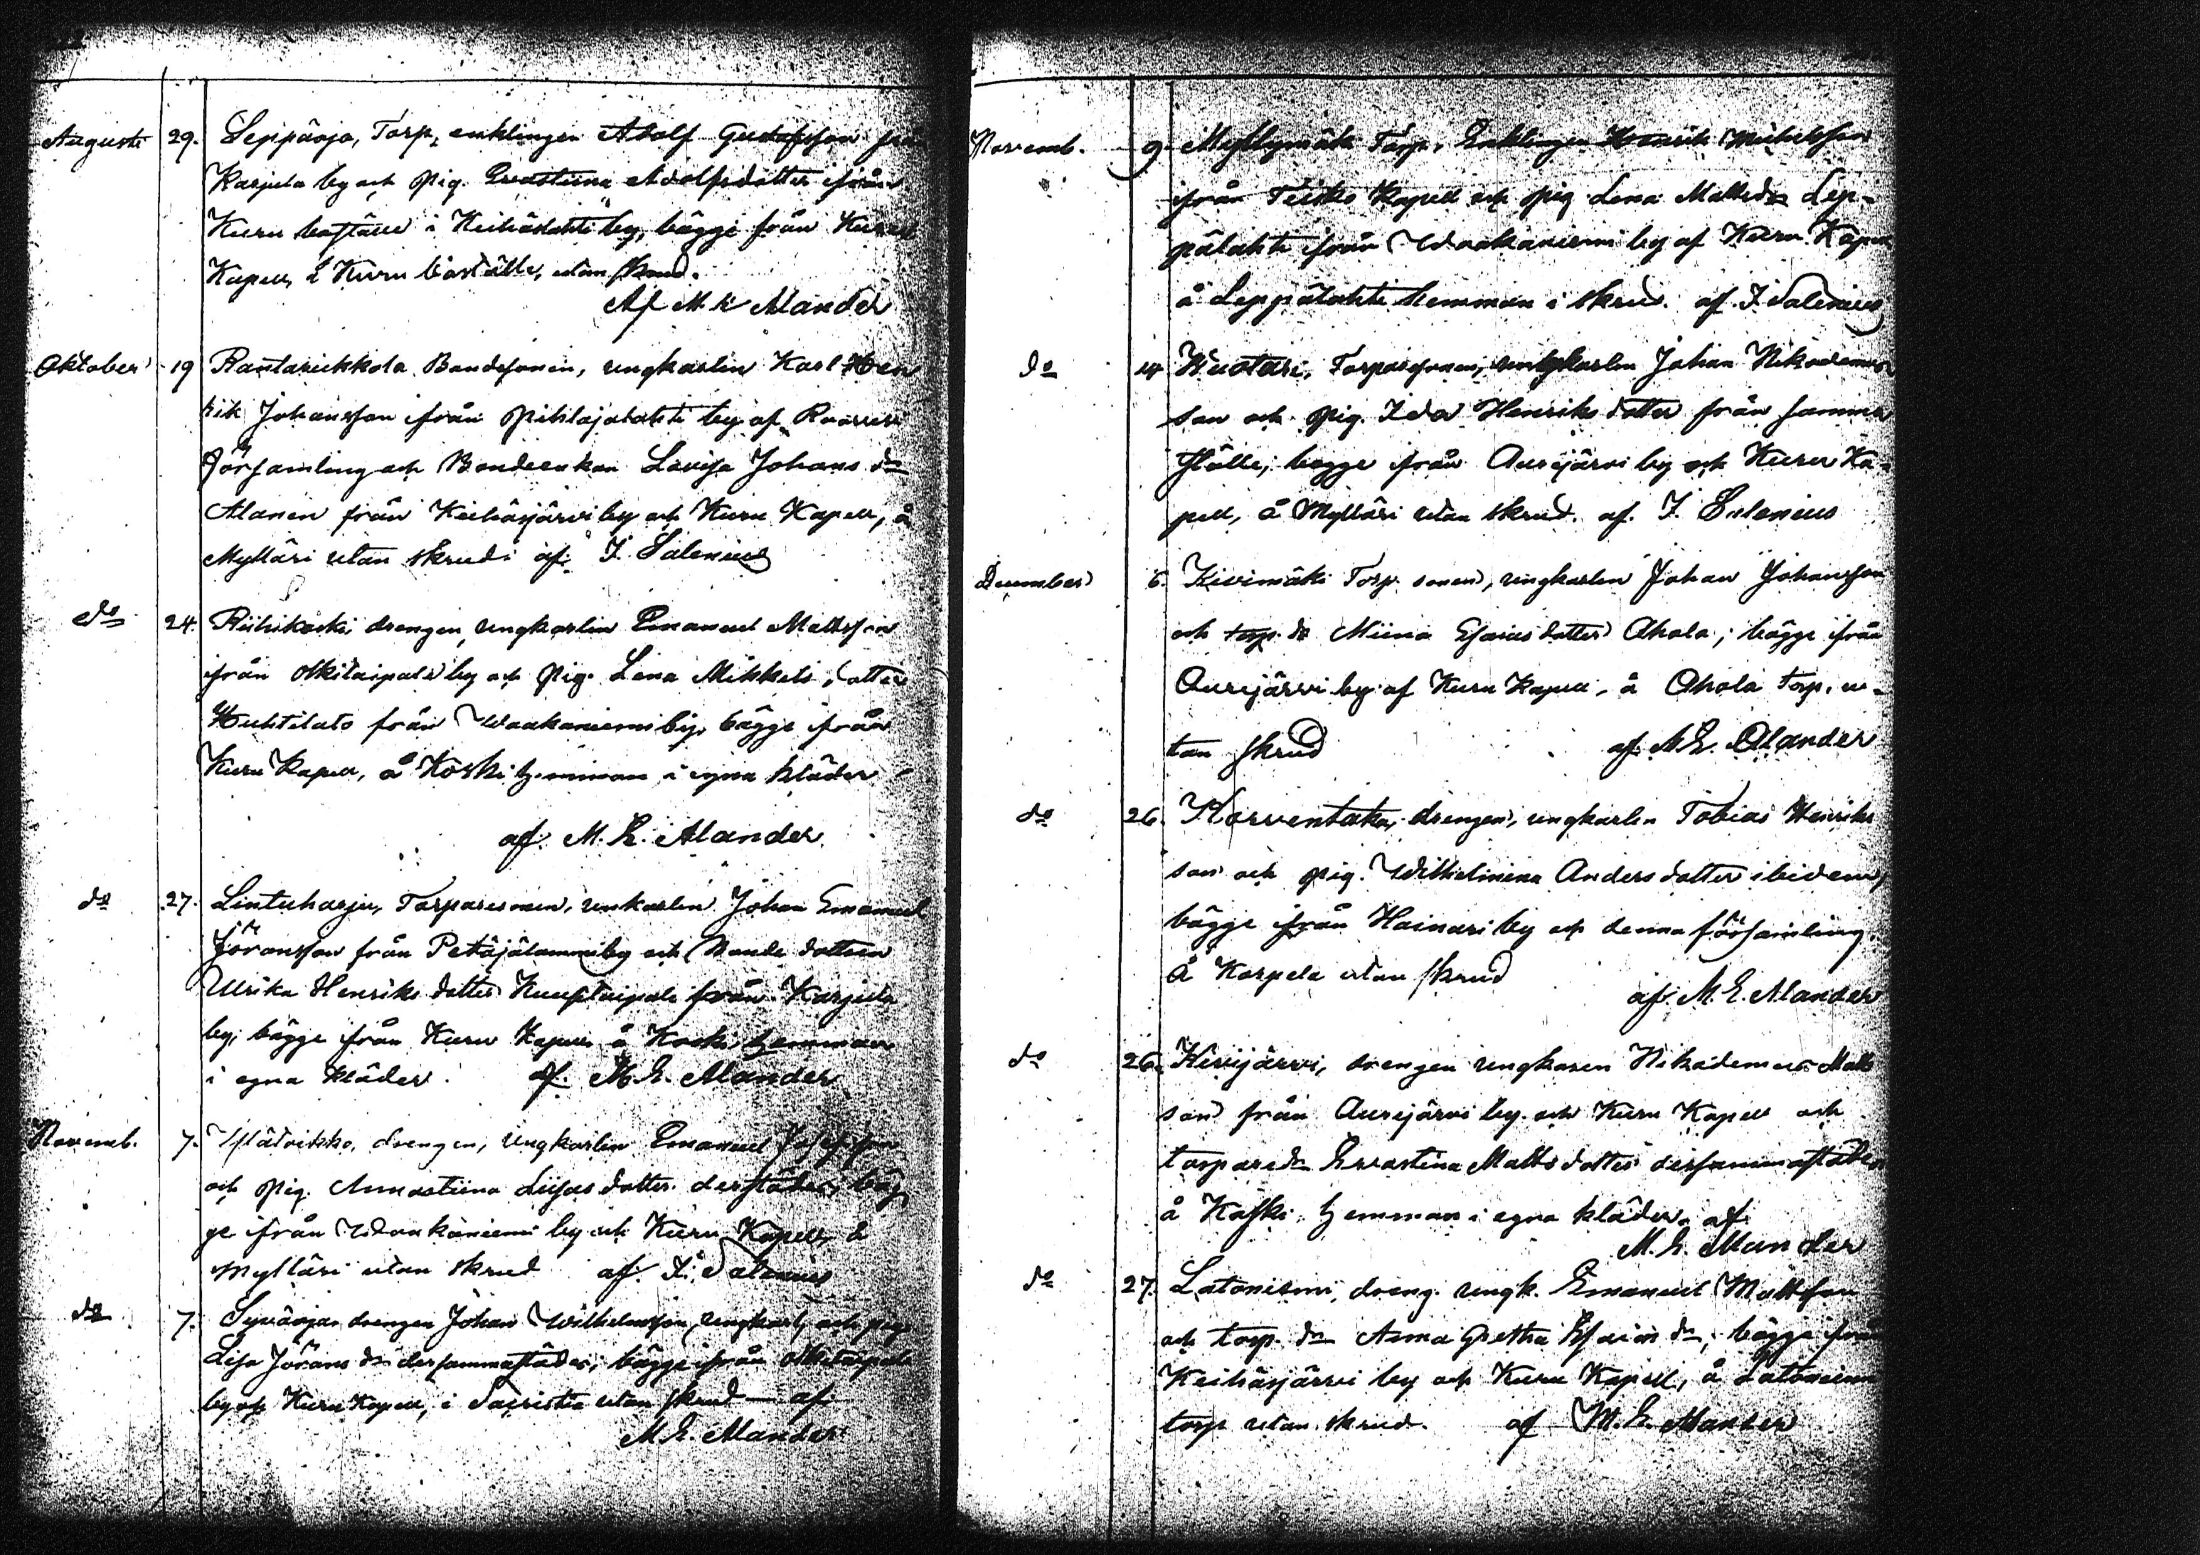 Augusti 29. Seppäoja, Torp, enklingen Adolf Gustafsson från
Karjula by och pig. Evastiina Adolfsdotter ifrån
Kuru boställe i Keihäslahti by, bägge från Kuru
Kapell, å Kuru boställe, utan skrud.
Af M. E. Alander
Oktober 19 Rantaruikkola Bondesonen, ungkarlen Karl Hen
rik Johansson ifrån Pihlajalahti by af Ruovesi
Församling och Bondeenkan Lovisa Johans dr
Alanen från Keihäsjärvi by och Kuru Kapell, å
Mylläri utan skrud. af. I. Salenius
do 24. Riihikoski drengen, ungkarlen Emanuel Mattsson
ifrån Itkitaipale by och pig. Lena Mikkels dotter
Huhtilato från Waakaniemi by, bägge ifrån
Kuru Kapell, å Koski hemman i egna kläder
af. M. E. Alander
do 27. Lintuharju, Torparesonen, unkarlen Johan Emanuel
Jöransson från Petäjälammi by och Bonde dottren
Ulrika Henriks dotter från Karjula
by, bägge ifrån Kuru Kapell å Koski hemman
i egna kläder. af. M. E. Alander
Novemb. 7. drengen, ungkarlen Emanuel Josefsson
och pig. Annastiina dotter derstädes, bäg
ge ifrån Waakaniemi by och Kuru Kapell, å
Mylläri utan skrud af. I. Salenius
do 7. Syväoja drengen Johan Wilhelmsson, ungkarl, och pig
Lisa Jörans dr dersammastädes, bägge ifrån Itkitaipale
by och Kuru Kapell, i Sacristia utan skrud af
M. E. Alander
Novemb. 9. Myllymäki Torp. Enklingen Henrik Michelsson
ifrån Teisko Kapell och pig. Lena Mattsdr Lep-
pälahti från Waakaniemi by af Kuru Kapell
å Leppälahti hemman i skrud. af. I. Salenius
do 14 Kuotari, Torparsonen, ungkarlen Johan Nikodemus
son och pig. Ida Henriks dotter från samma
ställe; bägge ifrån Aurejärvi by och Kuru Ka-
pell, å Mylläri utan skrud. af. I. Salenius
December 6. Kivimäki Torp. sonen, ungkarlen Johan Johansson
och torp. dr Miina Esaias dotter Ahola; bägge ifrån
Aurejärvi by af Kuru Kapell, å Ahola torp, u-
tan skrud af. M. E. Alander
do 26. Korventaka, drengen, ungkarlen Tobias Henriks
son och pig. Wilhelmina Anders dotter ibidem,
bägge ifrån Hainari by och denna församling.
Å Karpela utan skrud
af. M. E. Alander
do 26. Kivijärvi, drengen ungkaren Nikodemus Matts
son från Aurejärvi by och Kuru Kapell och
torparedr Evastina Matts dotter dersammastädes
å Koski hemman i egna kläder af
M. E. Alander
do 27. Latoniemi, dreng. ungk. Emanuel Mattsson
och torp. dr Anna Gretha Esaias dr, bägge ifrån
Keihäsjärvi by och Kuru Kapell, å Latoniemi
torp utan skrud. af M. E. Alander